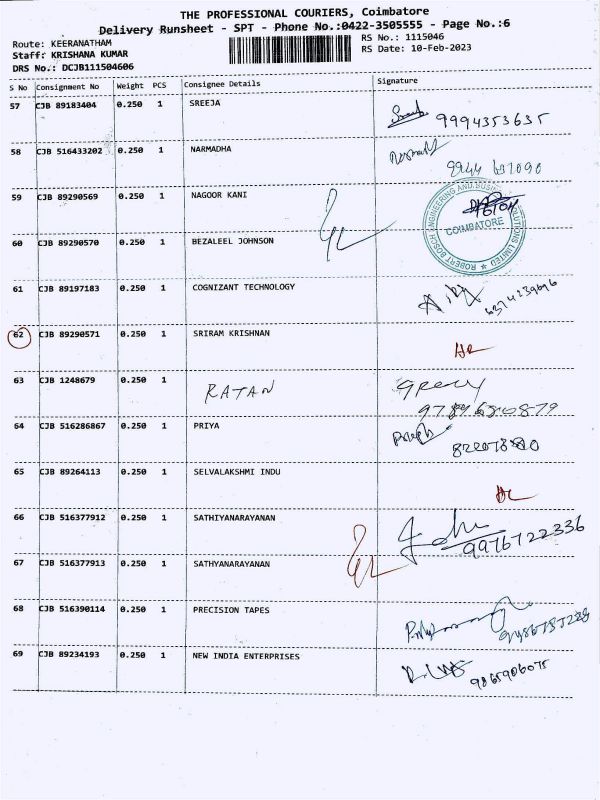 THE PROFESSIONAL COURIERS, Coimbatore
Delivery Runsheet - SPT - Phone No.:0422-3505555 - Page No.:6
Route: KEERANATHAM RS No.: 1115046
Staff: KRISHANA KUMAR RS Date: 10-Feb-2023
DRS No.: DCJB111504606
S No Consignment No Weight PCS Consignee Details Signature
57 CJB 89183404 0.250 1 SREEJA 9994353635
58 CJB 516433202 0.250 1 NARMADHA
59 CJB 89290569 0.250 1 NAGOOR KANI
ROBERT BOSCH ENGINEERING AND BUSINESS SOLUTIONS LIMITED
COIMBATORE
60 CJB 89290570 0.250 1 BEZALEEL JOHNSON
61 CJB 89197183 0.250 1 COGNIZANT TECHNOLOGY
62 CJB 89290571 0.250 1 SRIRAM KRISHNAN
63 CJB 1248679 0.250 1 RATAN
64 CJB 516286867 0.250 1 PRIYA
65 CJB 89264113 0.250 1 SELVALAKSHMI INDU
66 CJB 516377912 0.250 1 SATHIYANARAYANAN 9976722336
67 CJB 516377913 0.250 1 SATHYANARAYANAN
68 CJB 516390114 0.250 1 PRECISION TAPES
69 CJB 89234193 0.250 1 NEW INDIA ENTERPRISES 9865906075